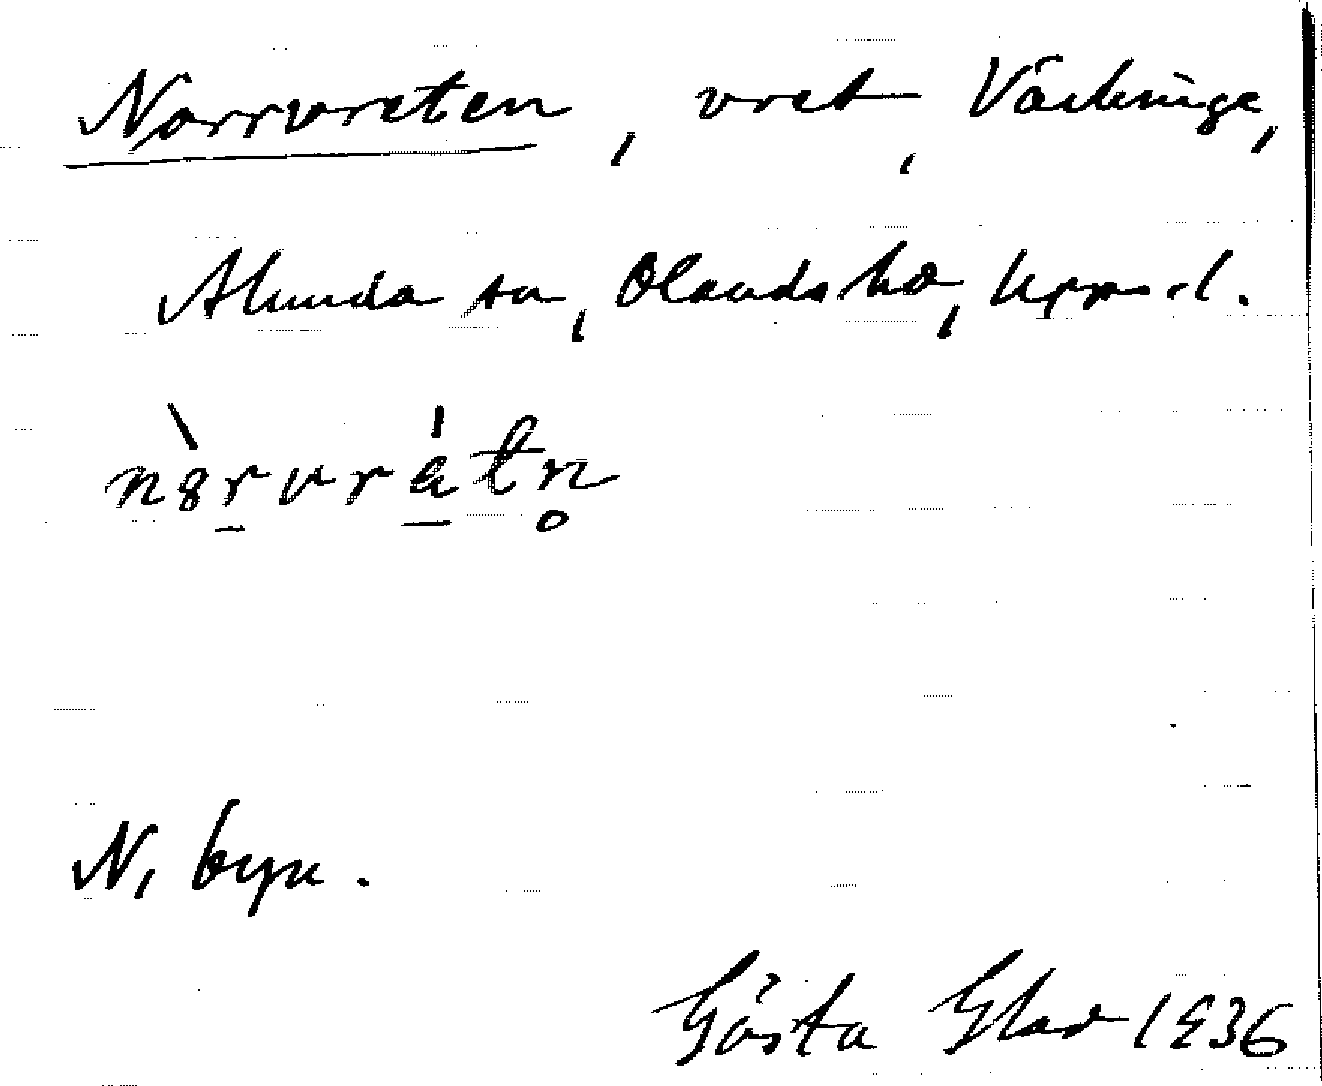 Norrvreten, vret, Väckinge,
Alunda sn, Olands hd, Uppsal.
nòrvrètn̥
N, byn.
Gösta Glad 1936